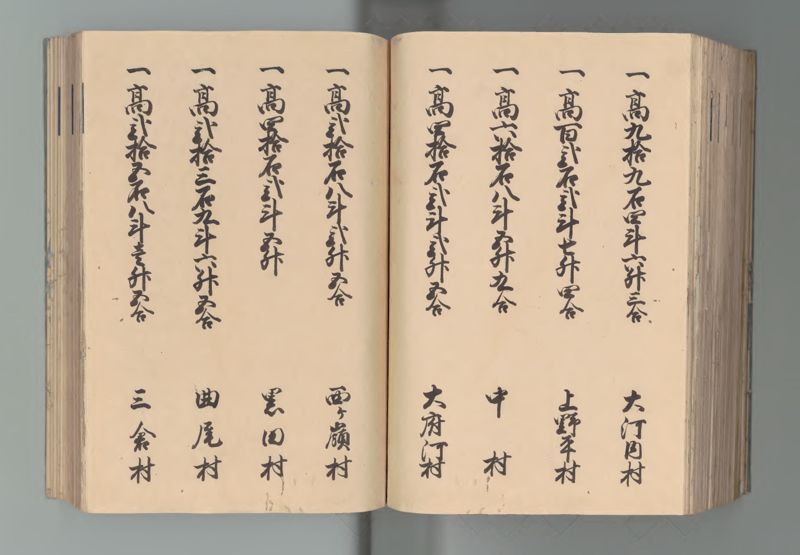 一高九拾九石四斗六舛三合 大河内村
一高百弐石弐斗七舛四合 上野平村
一高六拾石八斗五舛九合 中村
一高四拾石弐斗弐舛五合 大府河村
一高弐拾石八斗弐舛五合 西ケ嶺村
一高四拾石弐斗五舛 黒田村
一高弐拾三石九斗六舛五合 曲尾村
一高弐拾五石八斗壱舛五合 三倉村